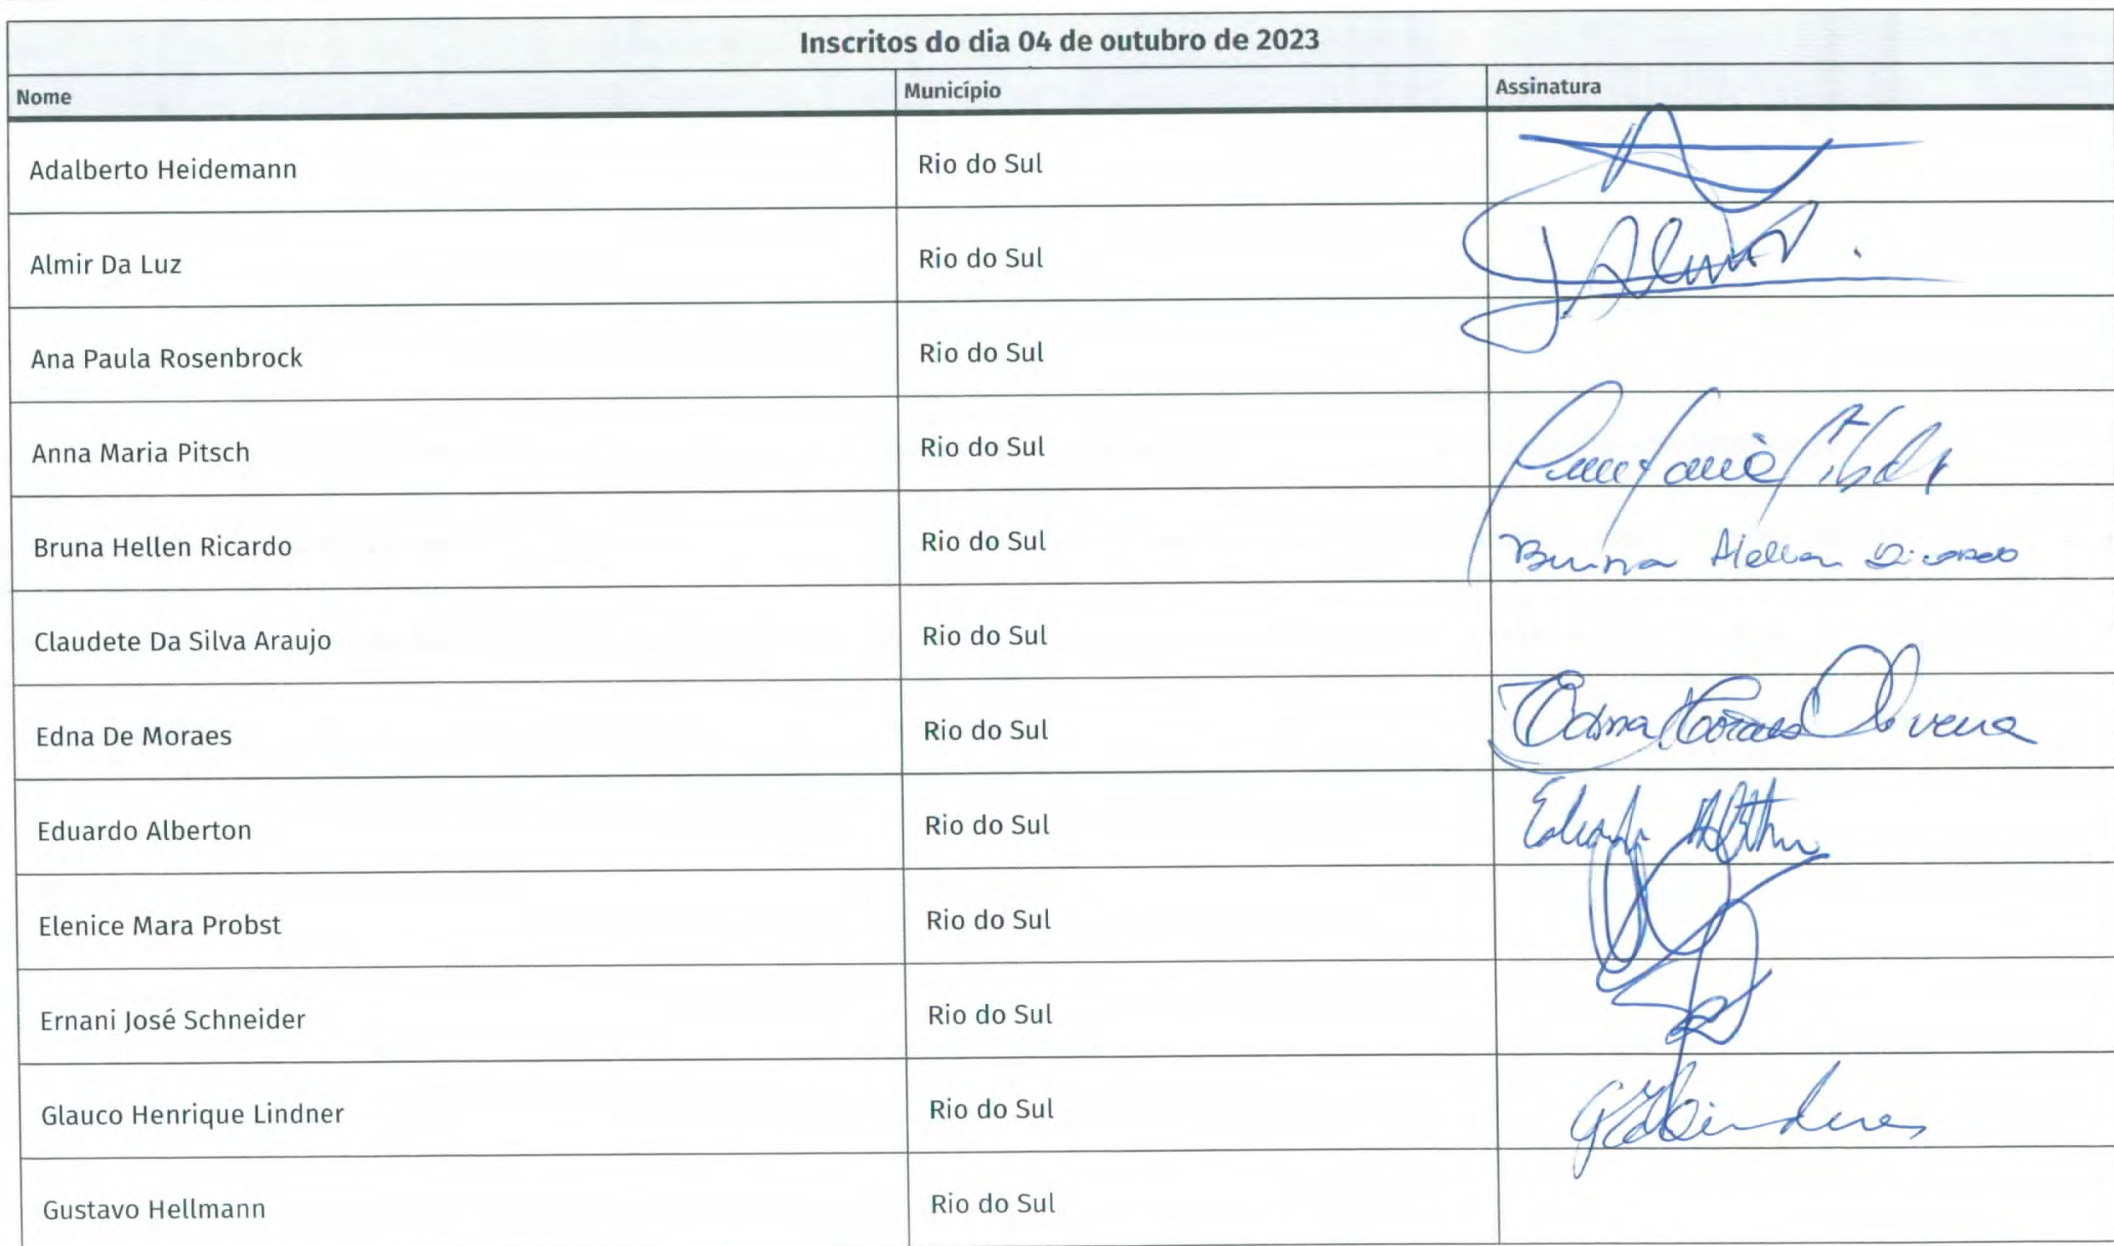 Inscritos do dia 04 de outubro de 2023
Nome Município Assinatura
Adalberto Heidemann Rio do Sul
Almir Da Luz Rio do Sul
Ana Paula Rosenbrock Rio do Sul
Anna Maria Pitsch Rio do Sul
Bruna Hellen Ricardo Rio do Sul Bruna Hellen Ricardo
Claudete Da Silva Araujo Rio do Sul
Edna De Moraes Rio do Sul Edna Moraes Oliveira
Eduardo Alberton Rio do Sul Eduardo
Elenice Mara Probst Rio do Sul
Ernani José Schneider Rio do Sul
Glauco Henrique Lindner Rio do Sul
Gustavo Hellmann Rio do Sul